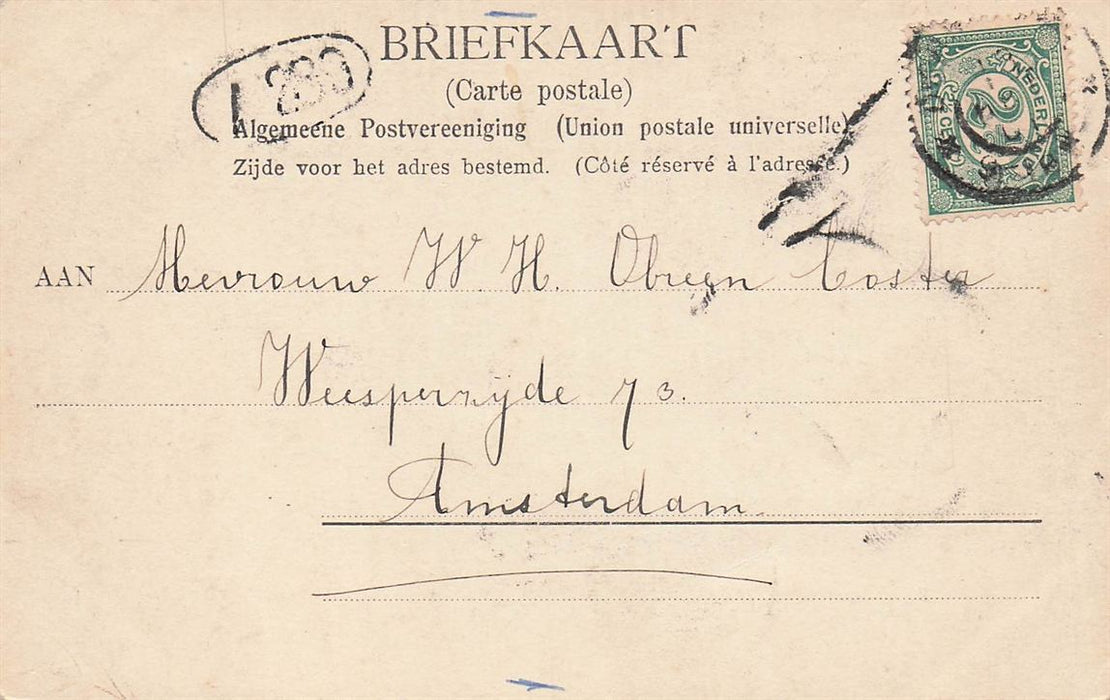 BRIEFKAART
(Carte postale)
Algemeene Postvereeniging (Union postale universelle)
Zijde voor het adres bestemd. (Côté réservé à l'adresse.)
NEDERLAND
CENT
AAN Mevrouw W. H. Obreen Coster
Weesperzijde 73.
Amsterdam